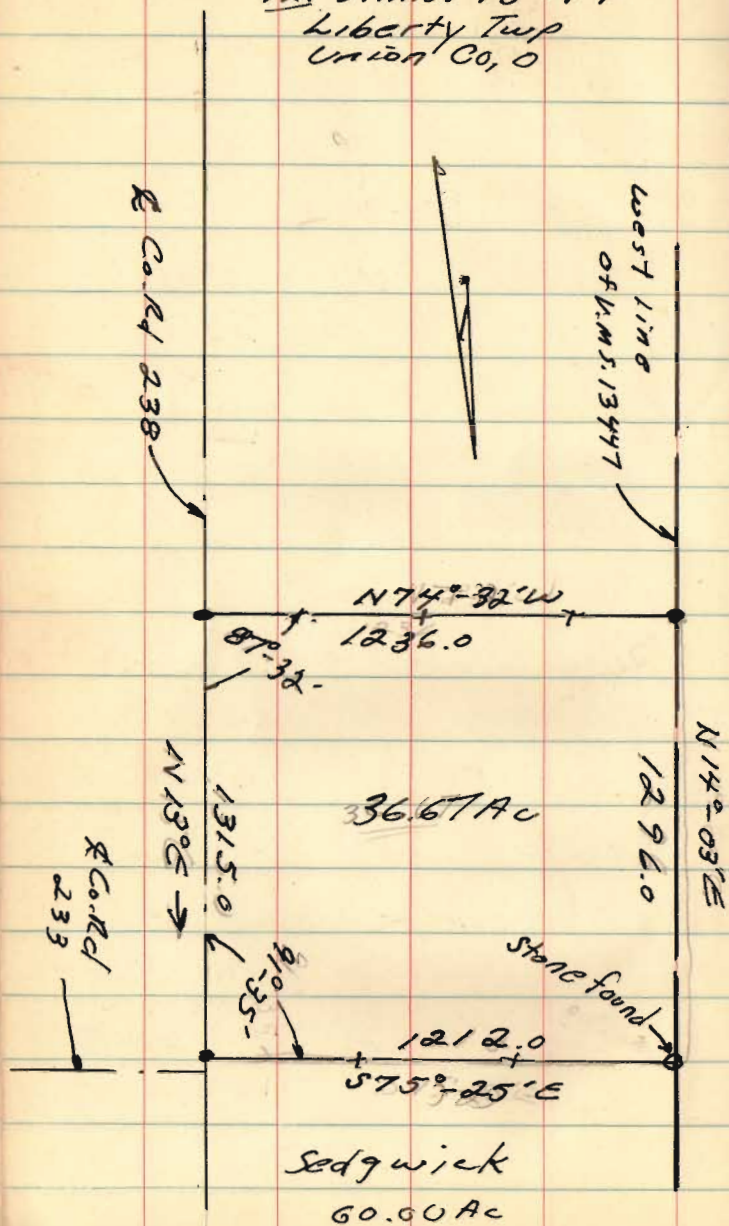 Liberty Twp
Union Co, O
West line
of V.M.S. 13447
℄ Co. Rd 238
N74°-32'W
1236.0
87°-32-
N14°-03'E
1296.0
36.67 Ac
1315.0
N13°E →
℄ Co. Rd
233
91°-35'
Stone found
1212.0
S75°-25'E
Sedgwick
60.00 Ac